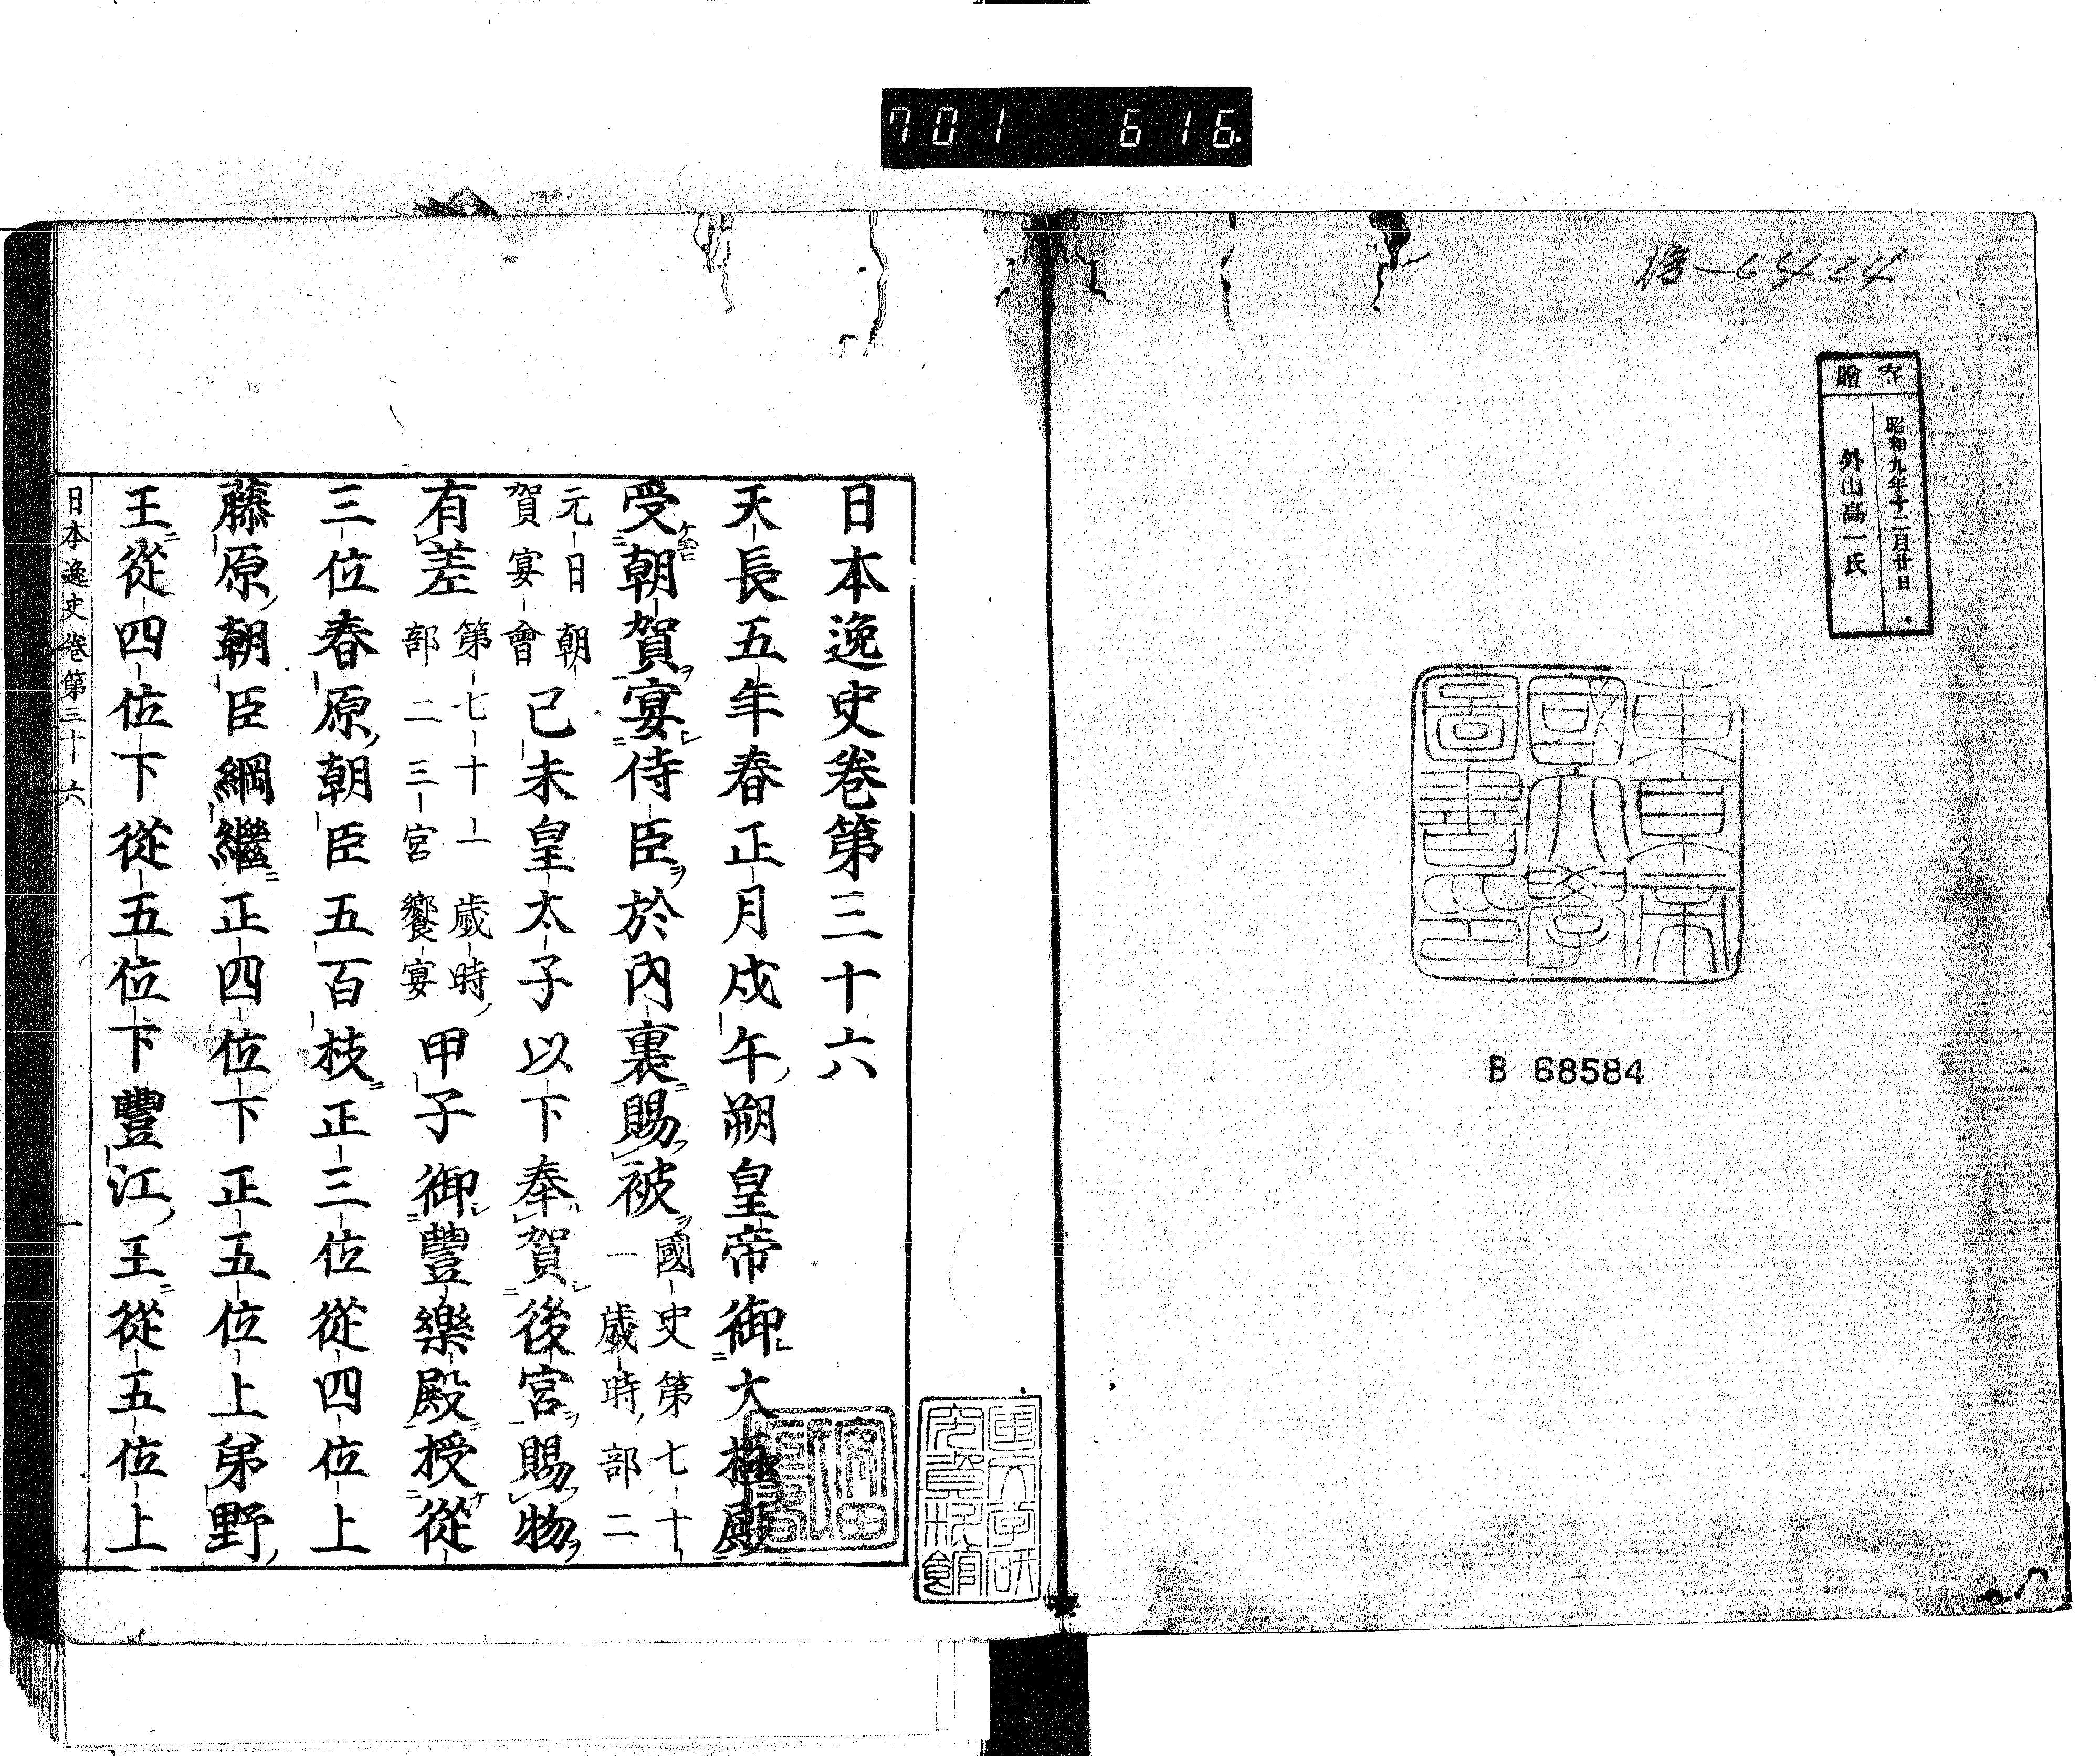 701 616
6424
寄贈
昭和九年十二月廿日
外山高一氏
東京帝
國大學
圖書印
B 68584
日本逸史卷第三十六
天長五年春正月戊午朔皇帝御大極殿
受朝賀宴侍臣於內裏賜被國史第七十
一歲時部二
元日朝
賀宴會
己未皇太子以下奉賀後宮賜物
有差
第七十一歲時
部二三宮饗宴
甲子御豐樂殿授從
三位春原朝臣五百枝正三位從四位上
藤原朝臣綱繼正四位下正五位上弟野
王從四位下從五位下豐江王從五位上
日本逸史卷第三十六
一